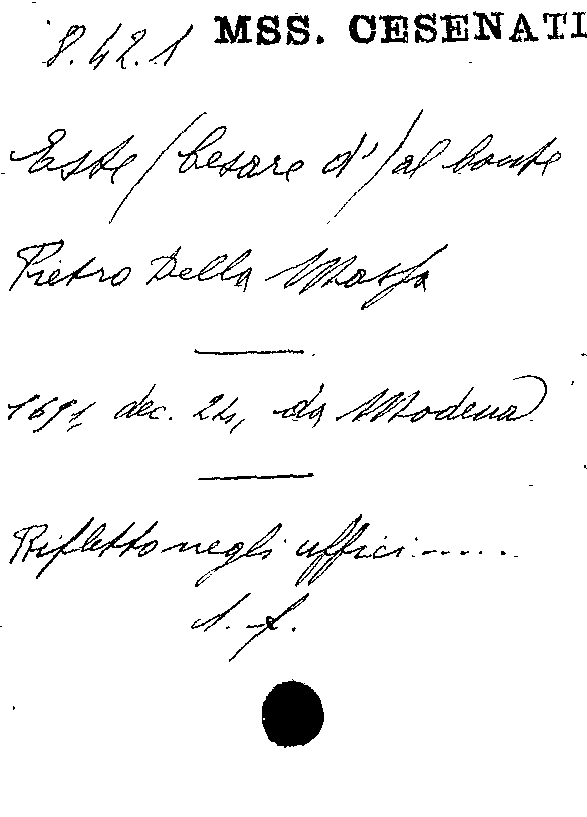 8.42.1 MSS. CESENATI
Este (Cesare d') al conte
Pietro Della Massa
1691 dec. 24, da Modena
Rifletto negli uffici.....
1. f.